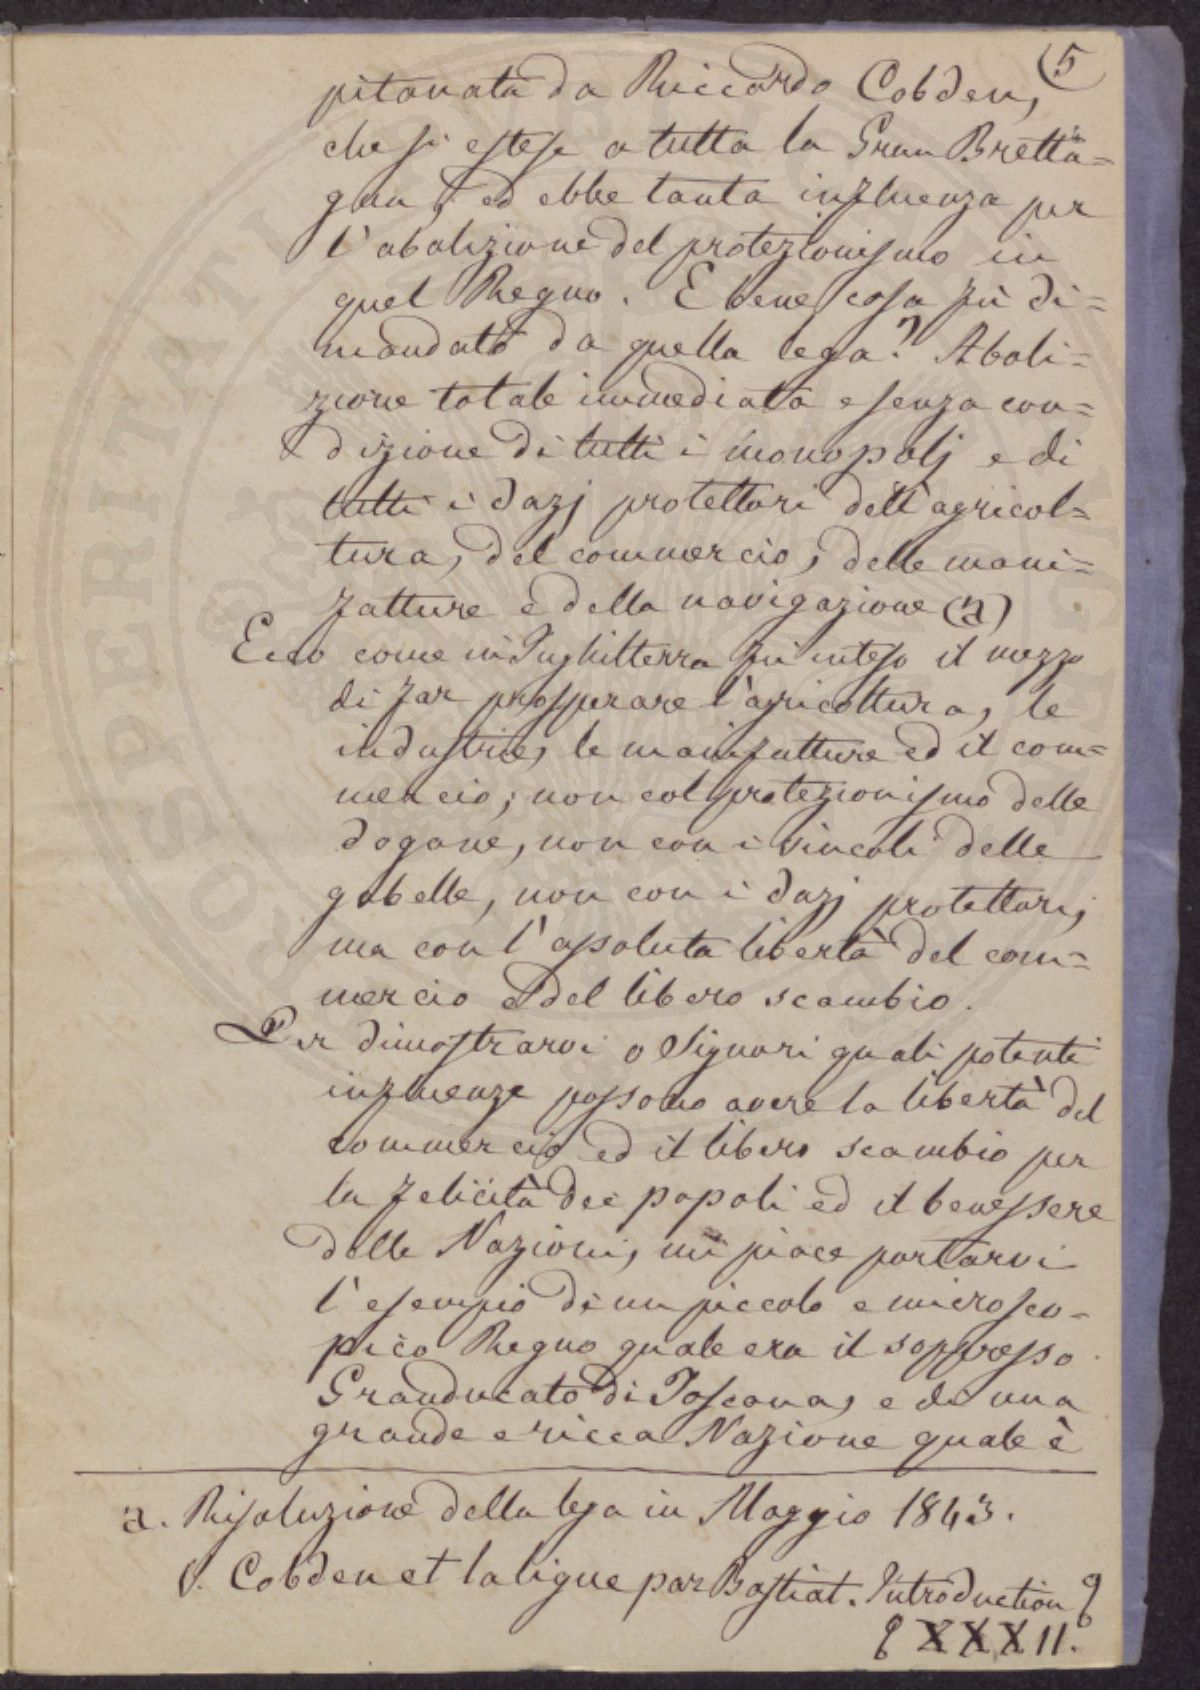 5
pitanata da Riccardo Cobden,
che si estese a tutta la Gran Bretta=
gna, ed ebbe tanta influenza per
l'abolizione del protezionismo in
quel Regno. Ebene cosa fù di=
mandato da quella lega? Aboli=
zione totale immediata e senza con=
dizione di tutti i monopolj e di
tutti i dazj protettori dell'agricol=
tura, del commercio, delle mani=
fatture e della navigazione (a)
Ecco come in Inghilterra fù inteso il mezzo
di far prosperare l'agricoltura, le
industrie, le manifatture ed il com=
mercio; non col protezionismo delle
dogane, non con i vincoli delle
gabelle, non con i dazj protettori,
ma con l'assoluta libertà del com=
mercio e del libero scambio.
Per dimostrarvi o Signori quali potenti
influenze possono avere la libertà del
commercio ed il libero scambio per
la felicità dei popoli ed il benessere
delle Nazioni, mi piace portarvi
l'esempio di un piccolo e microsco=
pico Regno quale era il soppresso
Granducato di Toscana, e di una
grande e ricca Nazione quale è
a. Risoluzione della lega in Maggio 1843.
V. Cobden et la ligue par Bastiat. Introduction
XXXII.
SPERITATI